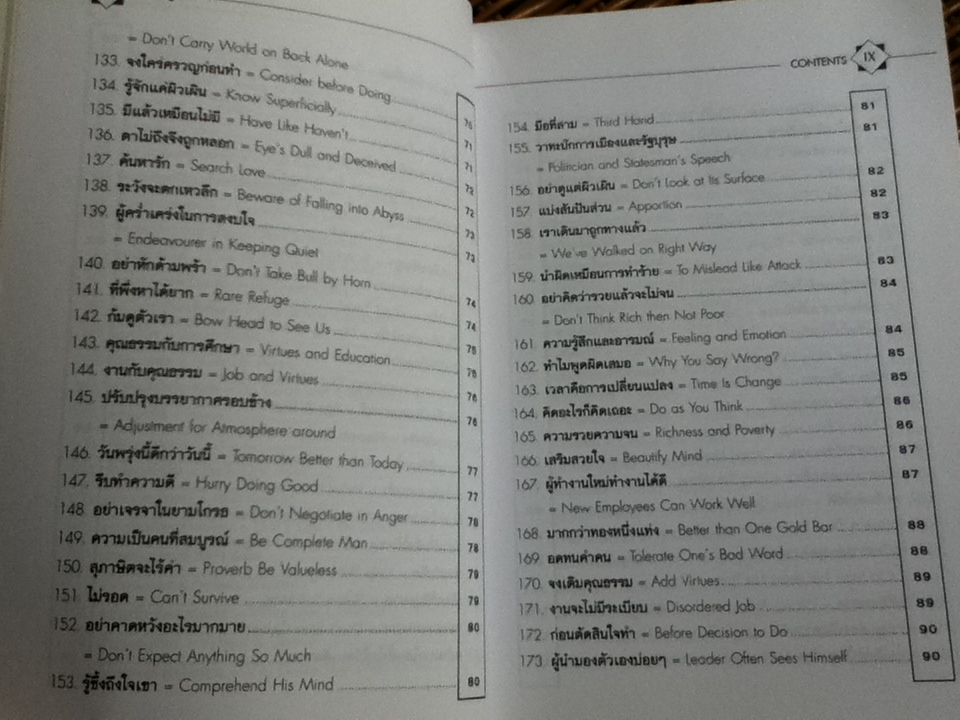 = Don't Carry World on Back Alone
133. จงใคร่ครวญก่อนทำ = Consider before Doing
134. รู้จักแค่ผิวเผิน = Know Superficially 70
135. มีแล้วเหมือนไม่มี = Have Like Haven't 71
136. ตาไม่ถึงจึงถูกหลอก = Eye's Dull and Deceived 71
137. ค้นหารัก = Search Love 72
138. ระวังจะตกเหวลึก = Beware of Falling into Abyss 72
139. ผู้คร่ำเคร่งในการสงบใจ 73
= Endeavourer in Keeping Quiet 73
140. อย่าหักด้ามพร้า = Don't Take Bull by Horn 74
141. ที่พึ่งหาได้ยาก = Rare Refuge 74
142. ก้มดูตัวเรา = Bow Head to See Us 75
143. คุณธรรมกับการศึกษา = Virtues and Education 75
144. งานกับคุณธรรม = Job and Virtues 76
145. ปรับปรุงบรรยากาศรอบข้าง 76
= Adjustment for Atmosphere around
146. วันพรุ่งนี้ดีกว่าวันนี้ = Tomorrow Better than Today 77
147. รีบทำความดี = Hurry Doing Good 77
148. อย่าเจรจาในยามโกรธ = Don't Negotiate in Anger 78
149. ความเป็นคนที่สมบูรณ์ = Be Complete Man 78
150. สุภาษิตจะไร้ค่า = Proverb Be Valueless 79
151. ไม่รอด = Can't Survive 79
152. อย่าคาดหวังอะไรมากมาย 80
= Don't Expect Anything So Much
153. รู้ซึ้งถึงใจเขา = Comprehend His Mind 80
CONTENTS IX
154. มือที่สาม = Third Hand 81
155. วาทะนักการเมืองและรัฐบุรุษ 81
= Politician and Statesman's Speech
156. อย่าดูแต่ผิวเผิน = Don't Look at Its Surface 82
157. แบ่งสันปันส่วน = Apportion 82
158. เราเดินมาถูกทางแล้ว 83
= We've Walked on Right Way
159. นำผิดเหมือนการทำร้าย = To Mislead Like Attack 83
160. อย่าคิดว่ารวยแล้วจะไม่จน 84
= Don't Think Rich then Not Poor
161. ความรู้สึกและอารมณ์ = Feeling and Emotion 84
162. ทำไมพูดผิดเสมอ = Why You Say Wrong? 85
163. เวลาคือการเปลี่ยนแปลง = Time Is Change 85
164. คิดอะไรก็คิดเถอะ = Do as You Think 86
165. ความรวยความจน = Richness and Poverty 86
166. เสริมสวยใจ = Beautify Mind 87
167. ผู้ทำงานใหม่ทำงานได้ดี 87
= New Employees Can Work Well
168. มากกว่าทองหนึ่งแท่ง = Better than One Gold Bar 88
169. อดทนคำคน = Tolerate One's Bad Word 88
170. จงเติมคุณธรรม = Add Virtues 89
171. งานจะไม่มีระเบียบ = Disordered Job 89
172. ก่อนตัดสินใจทำ = Before Decision to Do 90
173. ผู้นำมองตัวเองบ่อยๆ = Leader Often Sees Himself 90